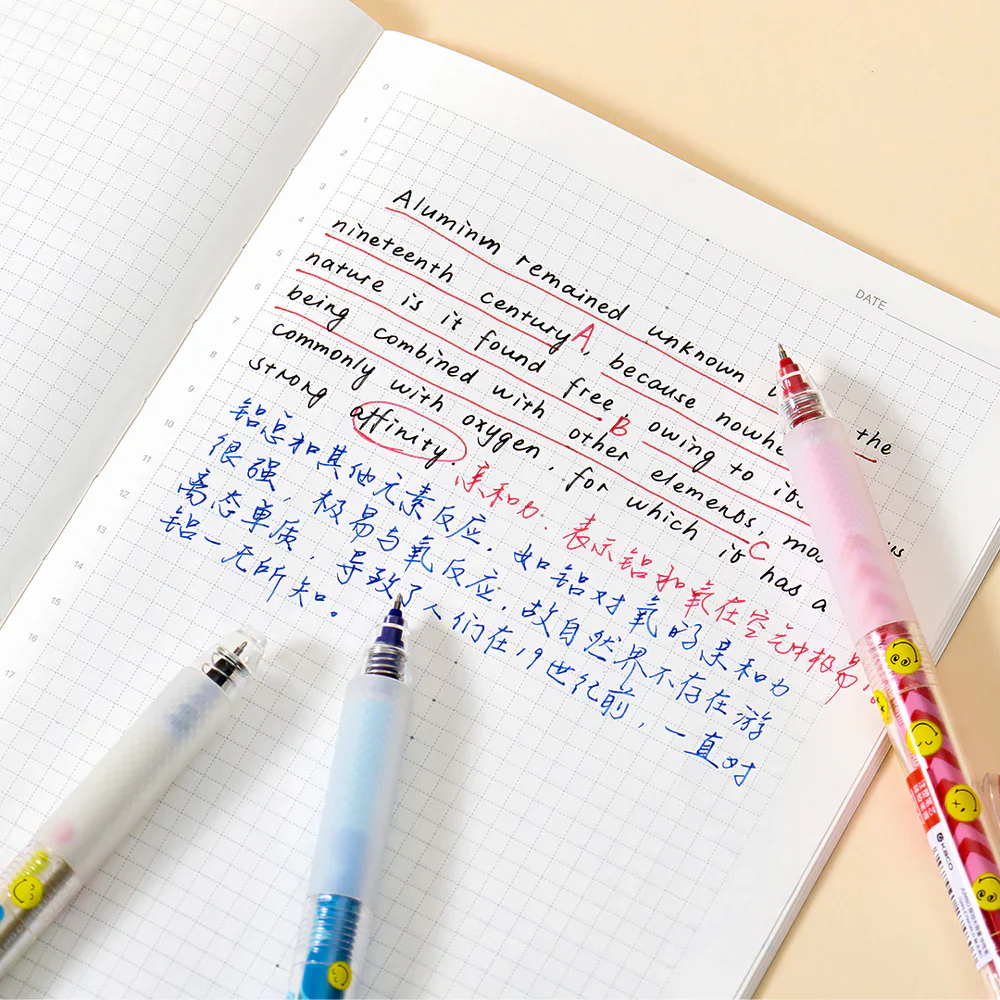 DATE
0
1
2
3
4
5
6
7
8
9
10
11
12
13
14
15
16
17
Aluminum remained unknown the
nineteenth century A, because
nature is it found free, B owing to
being combined with other elements, C
commonly with oxygen, for which it has a
strong affinity. 亲和力. 表示铝和氧在空气中极易
铝总和其他元素反应. 如铝对氧的亲和力
很强, 极易与氧反应, 故自然界不存在游
离态单质, 导致了人们在19世纪前, 一直对
铝一无所知。
KACO